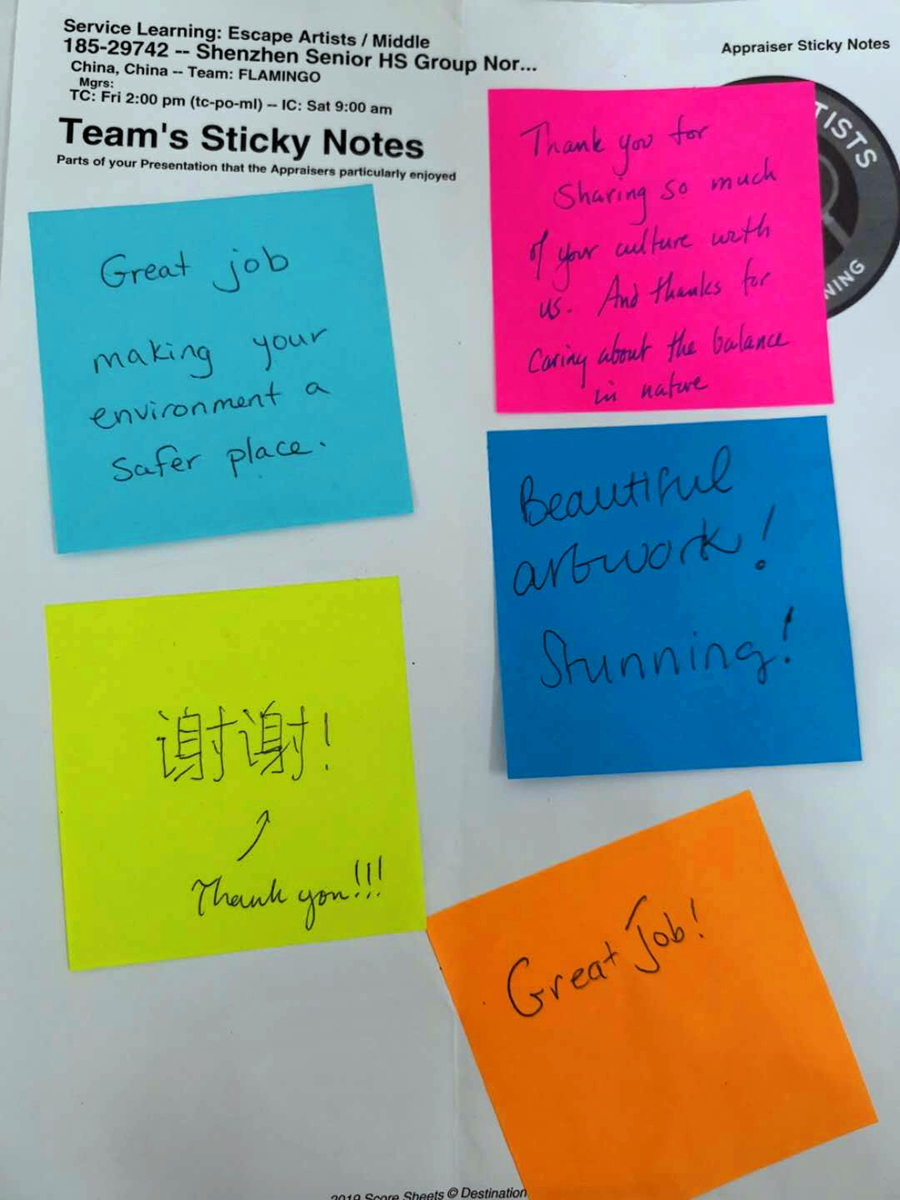 Service Learning: Escape Artists / Middle
185-29742 -- Shenzhen Senior HS Group Nor...
China, China -- Team: FLAMINGO
Mgrs:
TC: Fri 2:00 pm (tc-po-ml) -- IC: Sat 9:00 am
Appraiser Sticky Notes
Team's Sticky Notes
Parts of your Presentation that the Appraisers particularly enjoyed
TISTS
NING
Great job
making your
environment a
safer place.
Thank you for
sharing so much
of your culture with
us. And thanks for
caring about the balance
in nature
Beautiful
artwork!
Stunning!
谢谢!
Thank you!!!
Great Job!
2019 Score Sheets © Destination